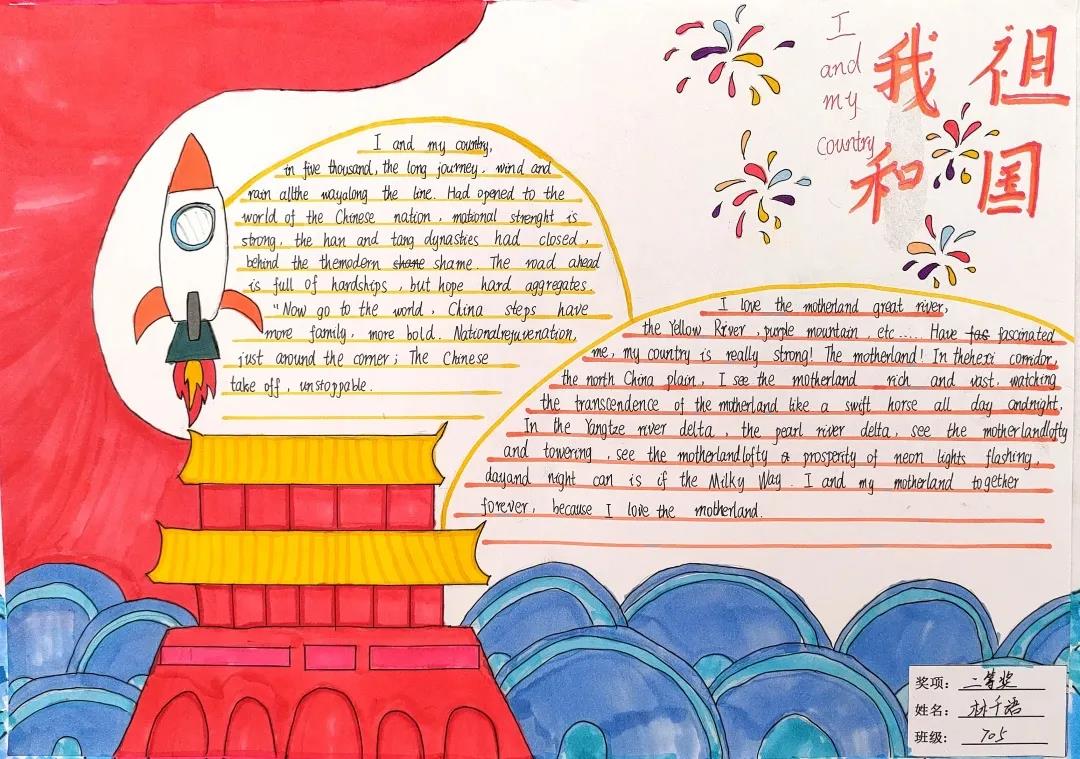 I
and
my
country
我和祖国
I and my country,
in five thousand, the long journey. wind and
rain allthe wayalong the line. Had opened to the
world of the Chinese nation, national strenght is
strong, the han and tang dynasties had closed,
behind the themodern shane shame. The road ahead
is full of hardships, but hope hard aggregates.
"Now go to the world, China steps have
more family, more bold. Nationalrejuvenation,
just around the corner; The Chinese
take off, unstoppable.
I love the motherland great river,
the Yellow River, purple mountain, etc..... Have fas fascinated
me, my country is really strong! The motherland! In thehexi corridor,
the north China plain, I see the motherland rich and vast, watching
the transcendence of the motherland like a swift horse all day andnight.
In the Yangtze river delta, the pearl river delta, see the motherlandlofty
and towering, see the motherlandlofty prosperity of neon lights flashing,
dayand night can is if the Milky Way. I and my motherland together
forever, because I love the motherland.
奖项: 二等奖
姓名: 林千语
班级: 705